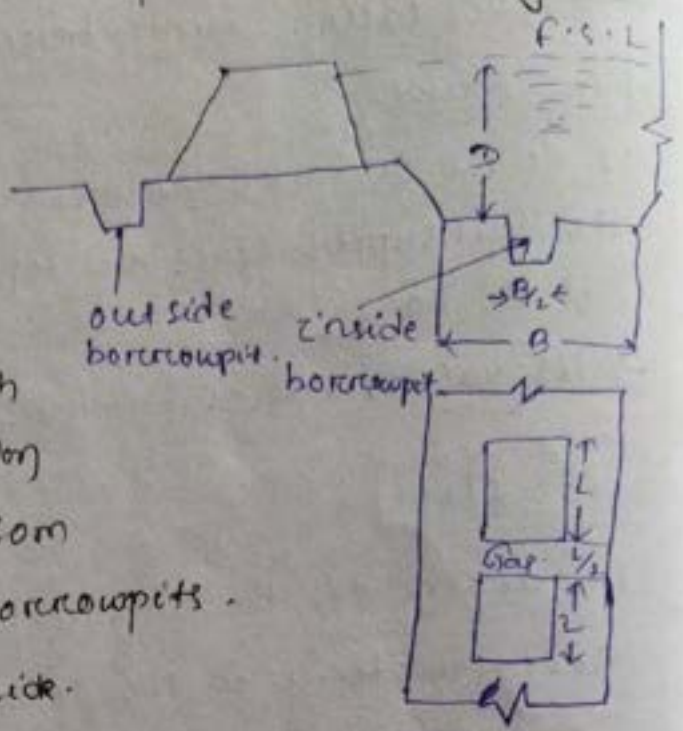 F.S.L
D
out side
borrowpit.
inside
borrowpit
B/2
B
L
Gap L/2
L
om
borrowpits.